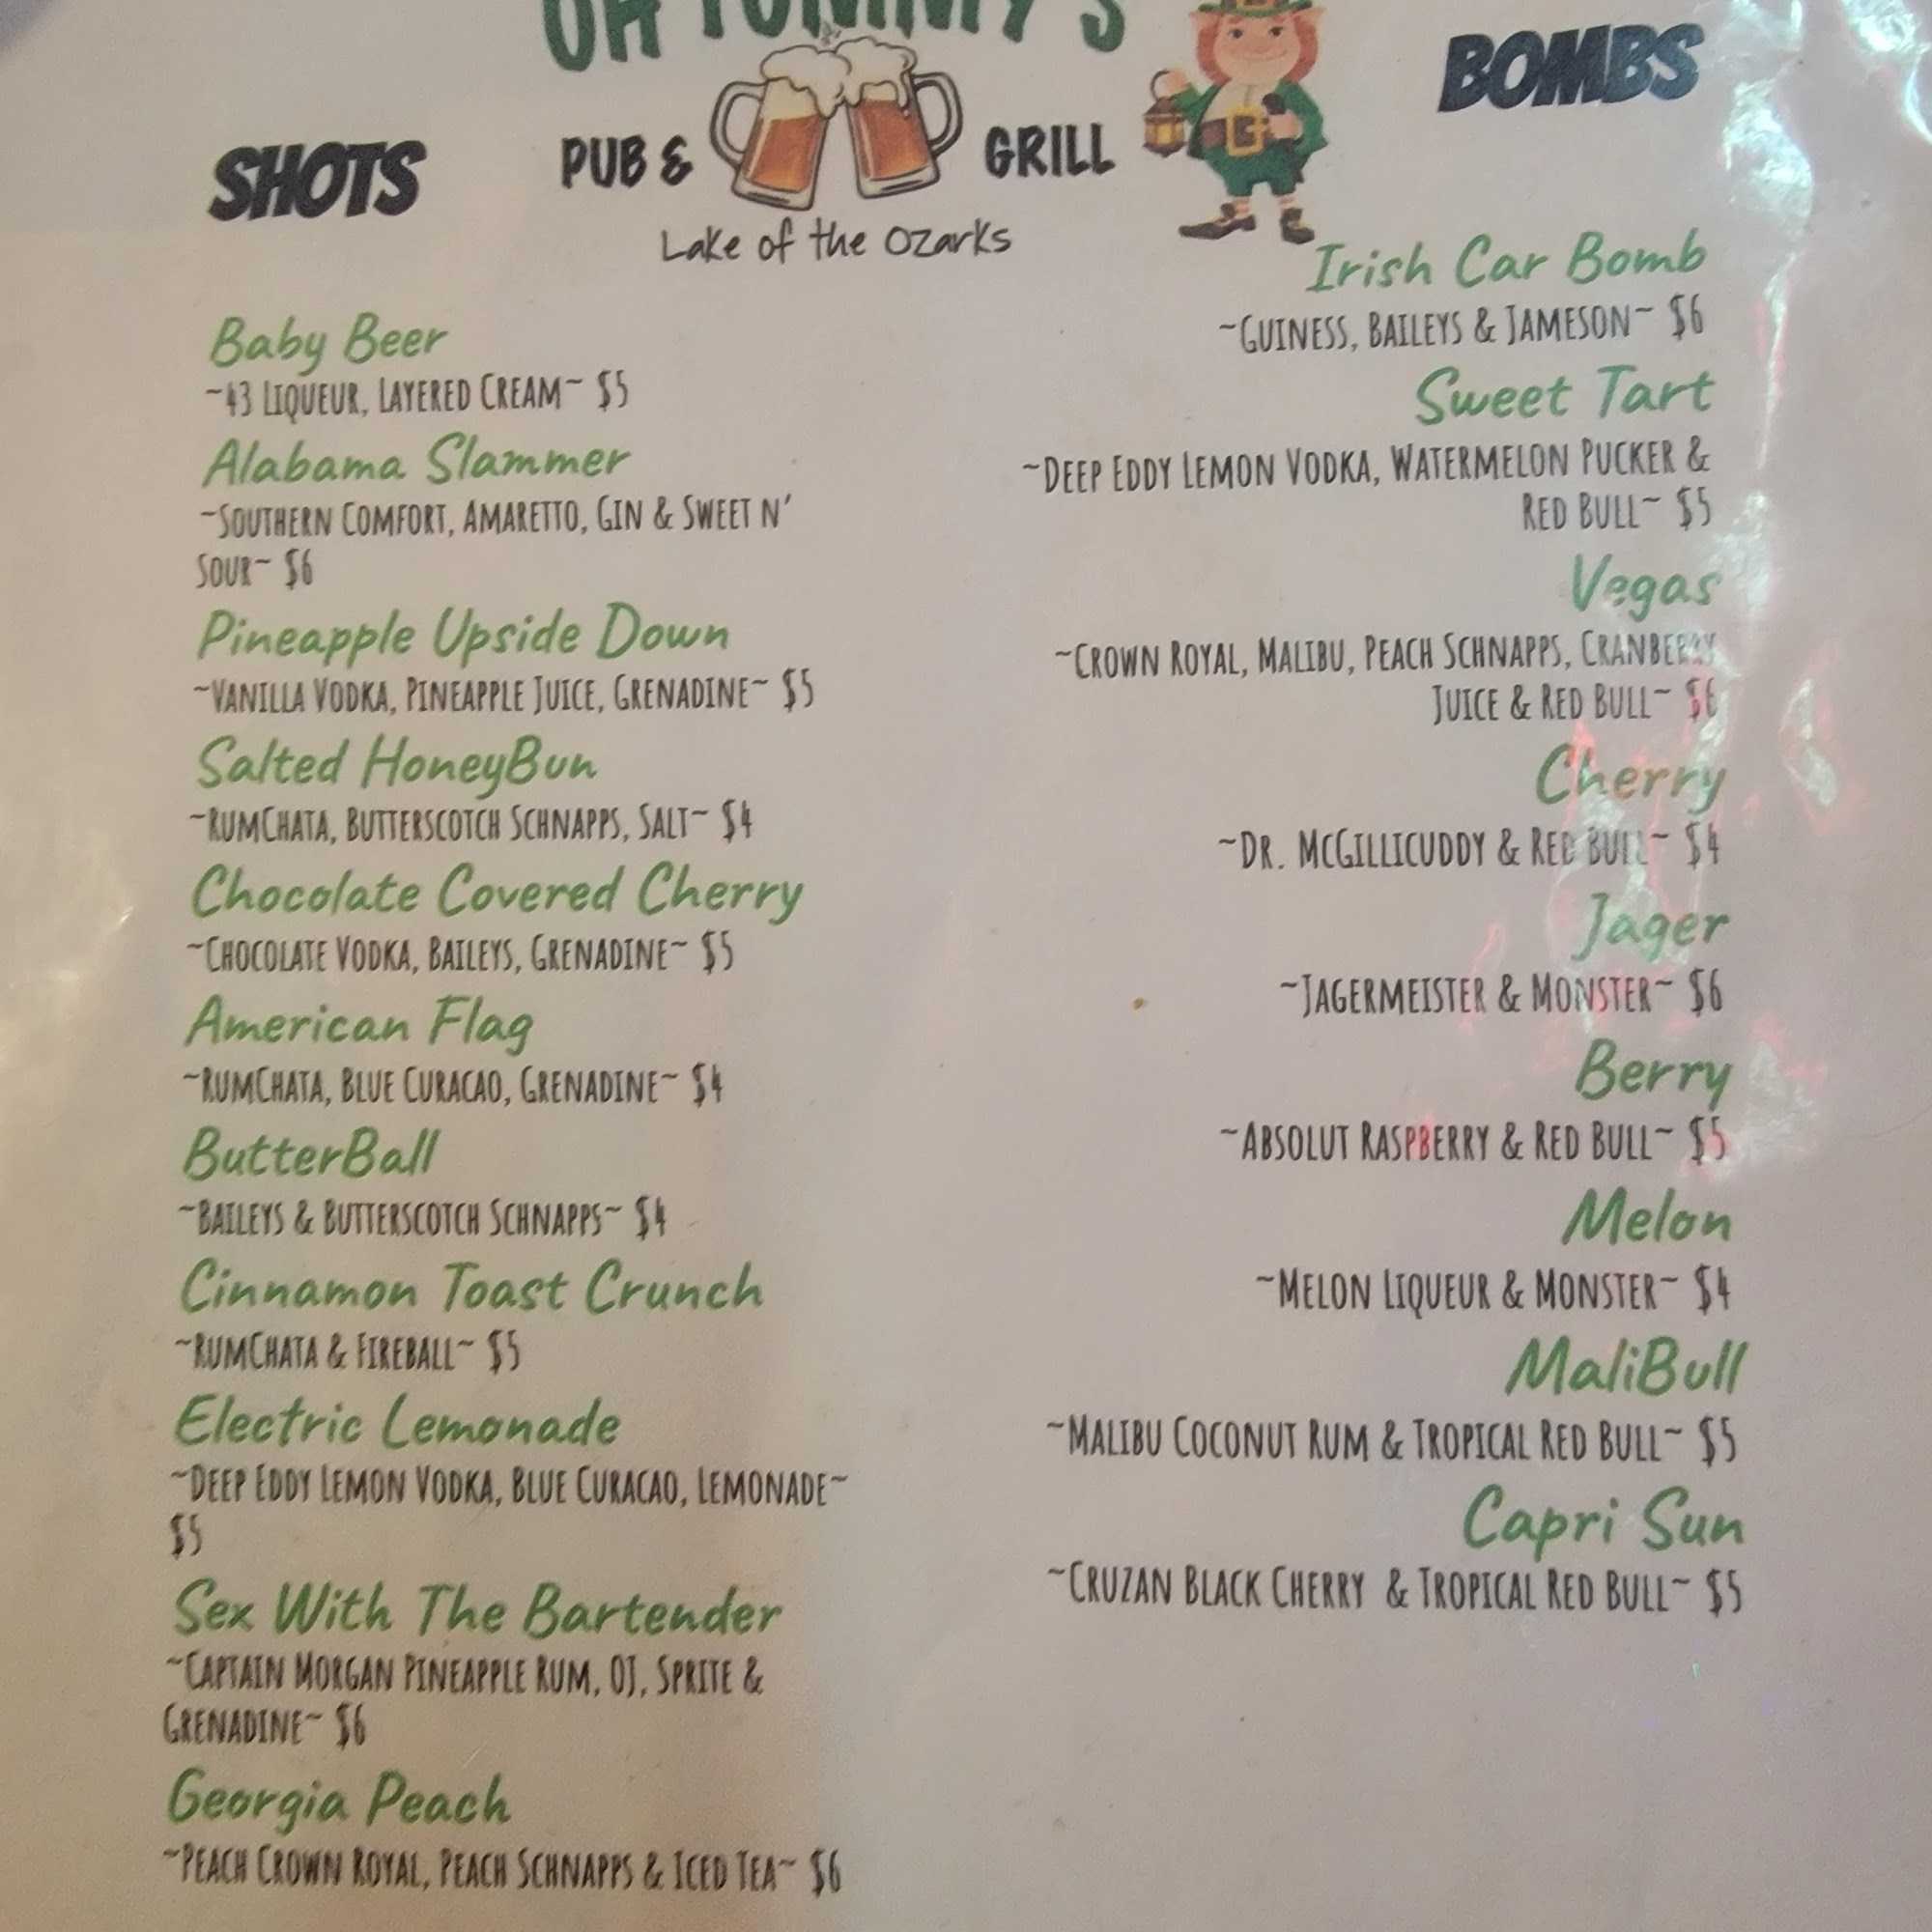 OH TOMMY'S
PUB & GRILL
Lake of the Ozarks
SHOTS
Baby Beer
~43 LIQUEUR, LAYERED CREAM~ $5
Alabama Slammer
~SOUTHERN COMFORT, AMARETTO, GIN & SWEET N'
SOUR~ $6
Pineapple Upside Down
~VANILLA VODKA, PINEAPPLE JUICE, GRENADINE~ $5
Salted HoneyBun
~RUMCHATA, BUTTERSCOTCH SCHNAPPS, SALT~ $4
Chocolate Covered Cherry
~CHOCOLATE VODKA, BAILEYS, GRENADINE~ $5
American Flag
~RUMCHATA, BLUE CURACAO, GRENADINE~ $4
ButterBall
~BAILEYS & BUTTERSCOTCH SCHNAPPS~ $4
Cinnamon Toast Crunch
~RUMCHATA & FIREBALL~ $5
Electric Lemonade
~DEEP EDDY LEMON VODKA, BLUE CURACAO, LEMONADE~
$5
Sex With The Bartender
~CAPTAIN MORGAN PINEAPPLE RUM, OJ, SPRITE &
GRENADINE~ $6
Georgia Peach
~PEACH CROWN ROYAL, PEACH SCHNAPPS & ICED TEA~ $6
BOMBS
Irish Car Bomb
~GUINESS, BAILEYS & JAMESON~ $6
Sweet Tart
~DEEP EDDY LEMON VODKA, WATERMELON PUCKER &
RED BULL~ $5
Vegas
~CROWN ROYAL, MALIBU, PEACH SCHNAPPS, CRANBERRY
JUICE & RED BULL~ $6
Cherry
~DR. MCGILLICUDDY & RED BULL~ $4
Jager
~JAGERMEISTER & MONSTER~ $6
Berry
~ABSOLUT RASPBERRY & RED BULL~ $5
Melon
~MELON LIQUEUR & MONSTER~ $4
MaliBull
~MALIBU COCONUT RUM & TROPICAL RED BULL~ $5
Capri Sun
~CRUZAN BLACK CHERRY & TROPICAL RED BULL~ $5